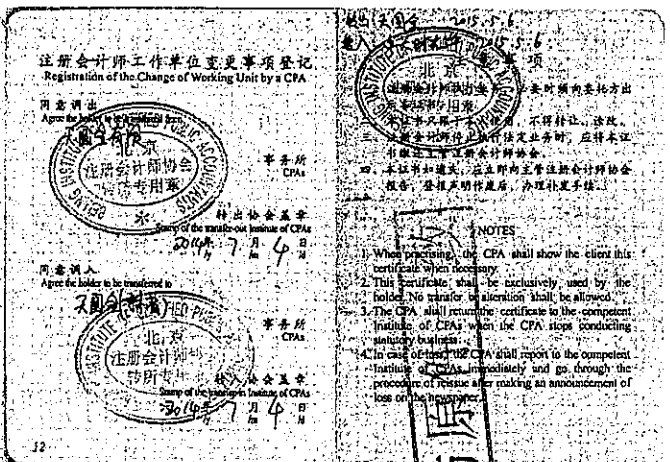 注册会计师工作单位变更事项登记
Registration of the Change of Working Unit by a CPA
同意调出
Agree the holder to be transferred from
事务所
CPAs
北京
注册会计师协会
转所专用章
转出协会盖章
Stamp of the transfer-out Institute of CPAs
2014年 7月 4日
/y /m /d
同意调入
Agree the holder to be transferred to
事务所
CPAs
北京
注册会计师协会
转所专用章
转入协会盖章
Stamp of the transfer-in Institute of CPAs
2014年 7月 4日
/y /m /d
12
2015.5.6
2015.5.6
注意事项
一、注册会计师执行业务,必要时须向委托方出
示本证书。
二、本证书只限于本人使用,不得转让、涂改。
三、注册会计师停止执行法定业务时,应将本证
书缴还主管注册会计师协会。
四、本证书如遗失,应立即向主管注册会计师协会
报告,登报声明作废后,办理补发手续。
NOTES
1. When practising, the CPA shall show the client this
certificate when necessary.
2. This certificate shall be exclusively used by the
holder. No transfer or alteration shall be allowed.
3. The CPA shall return the certificate to the competent
Institute of CPAs when the CPA stops conducting
statutory business.
4. In case of loss, the CPA shall report to the competent
Institute of CPAs immediately and go through the
procedure of reissue after making an announcement of
loss on the newspaper.